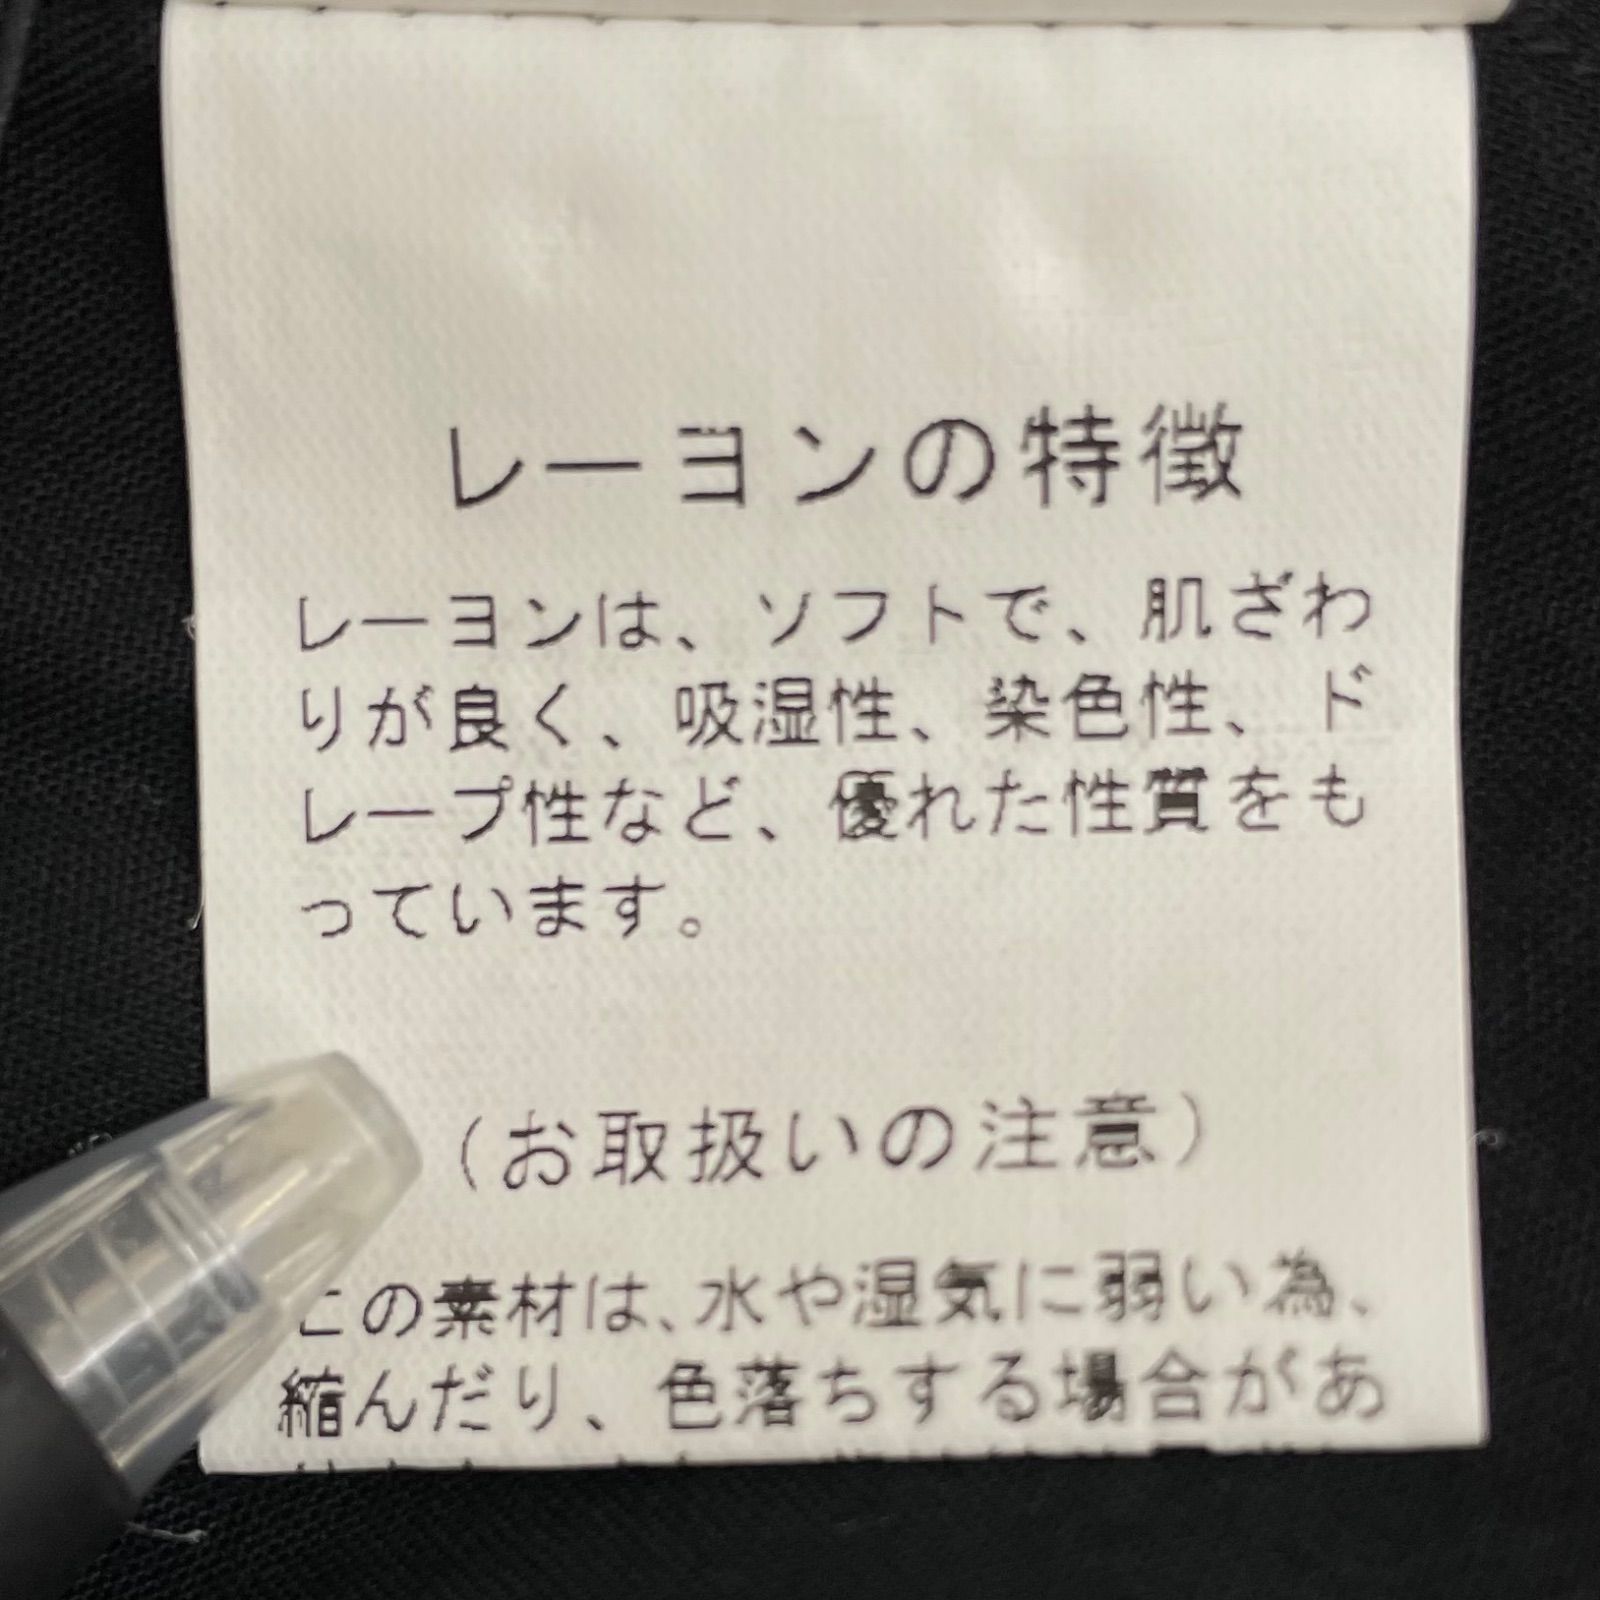 レーヨンの特徴
レーヨンは、ソフトで、肌ざわ
りが良く、吸湿性、染色性、ド
レープ性など、優れた性質をも
っています。
（お取扱いの注意）
この素材は、水や湿気に弱い為、
縮んだり、色落ちする場合があ